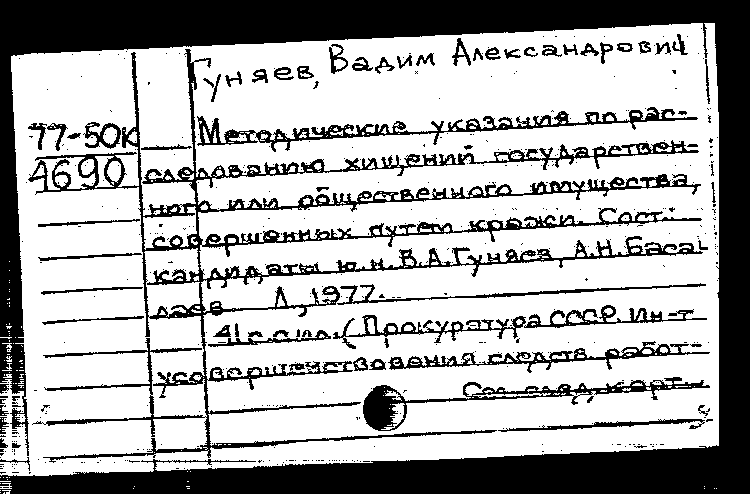 Гуняев, Вадим Александрович
77-50К
4690
Методические указания по рас-
следованию хищений государствен-
ного или общественного имущества,
совершенных путем кражи. Сост.:
кандидаты ю.н. В.А.Гуняев, А.Н.Баса-
лаев Л., 1977.
41 с. с ил. (Прокуратура СССР. Ин-т
усовершенствования следств. работ-
См. след. карт.